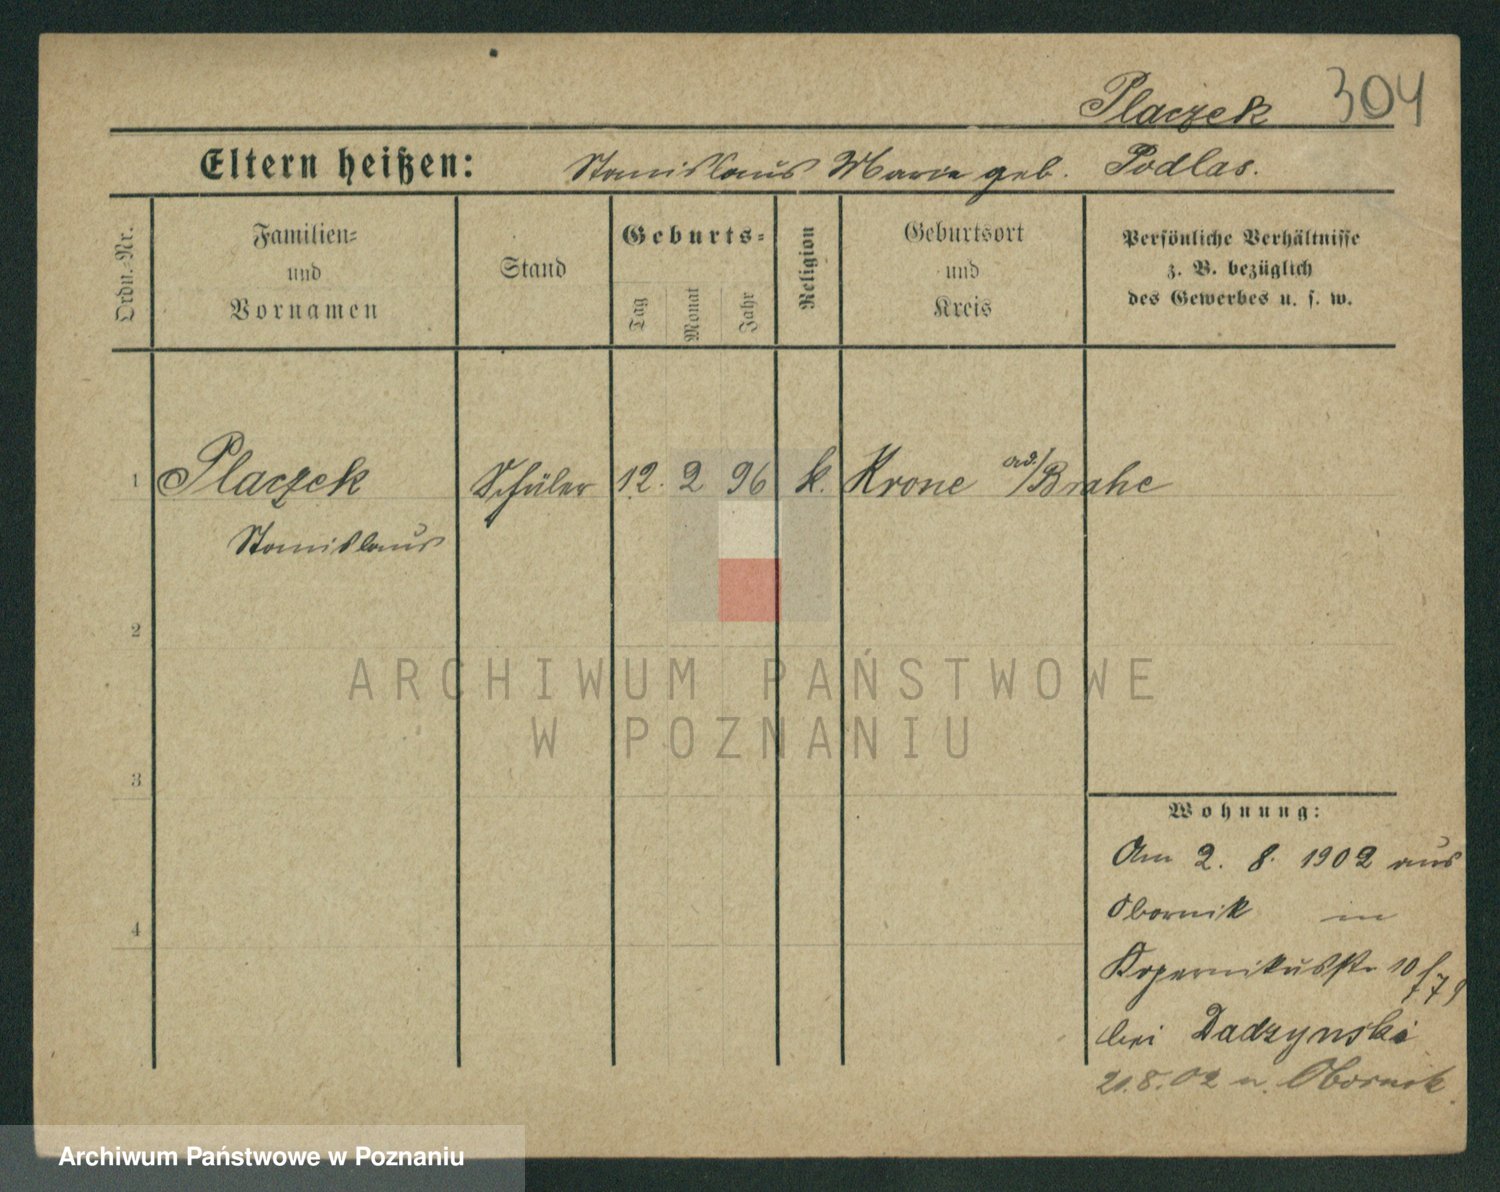 Placzek 304
Eltern heißen: Stanislaus Marie geb. Podlas.
Ordn.-Nr.
Familien-
und
Vornamen
Stand
Geburts-
Tag
Monat
Jahr
Religion
Geburtsort
und
Kreis
Persönliche Verhältnisse
z. B. bezüglich
des Gewerbes u. s. w.
1 Placzek Schüler 12. 2 96 k. Krone a/d. Brahe
Stanislaus
2
3
4
ARCHIWUM PAŃSTWOWE
W POZNANIU
Wohnung:
Am 2. 8. 1902 aus
Obornik in
Kopernikusstr 10
bei Dadzynski
20.8.02 n. Obornik.
Archiwum Państwowe w Poznaniu